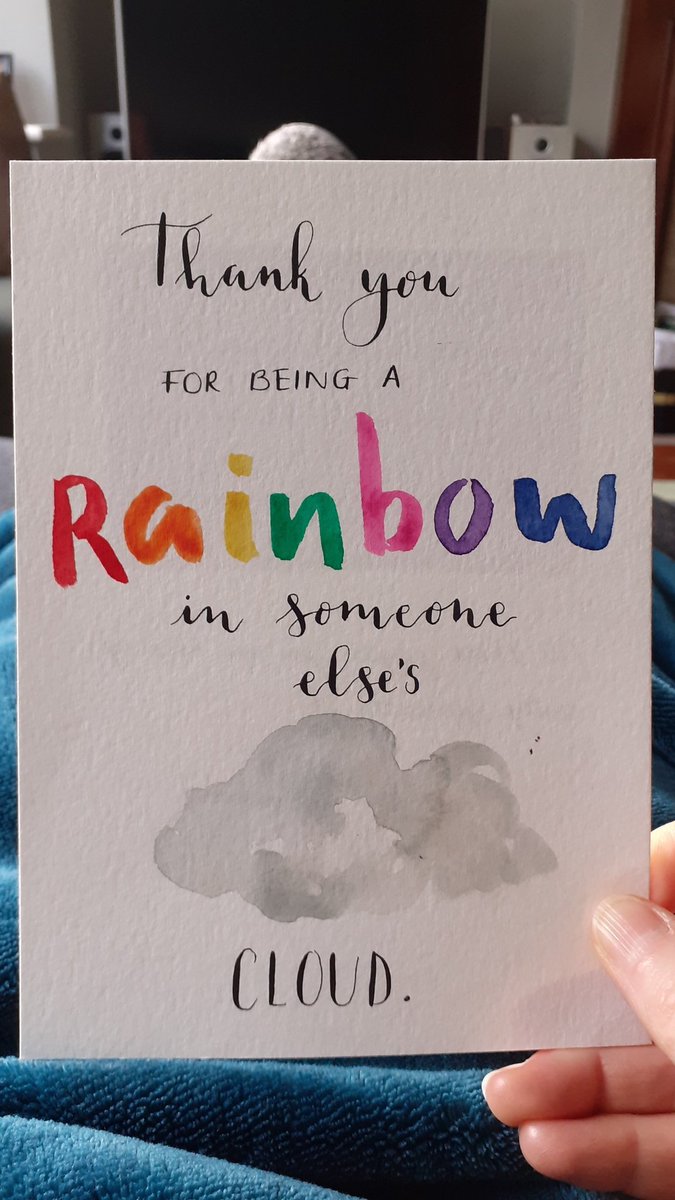 Thank you
FOR BEING A
Rainbow
in someone
else's
CLOUD.